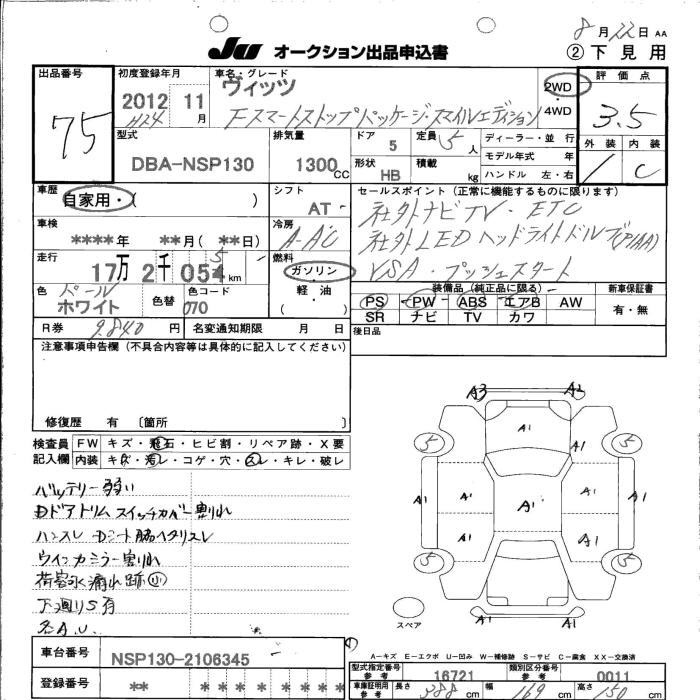 8月22日 AA
JU オークション出品申込書 ②下見用
出品番号 75
初度登録年月 2012 H24 年 11月
車名・グレード ヴィッツ
Fスマートストップパッケージ・スマイルエディション
2WD
4WD
評価点 3.5
外装 内装
C
型式 DBA-NSP130
排気量 1300CC
ドア 5
定員 5人
形状 HB
積載 kg
ディーラー・並行
モデル年式 年
ハンドル 左・右
車歴 自家用・( )
シフト AT
車検 ****年 **月(**日)
冷房 A-AC
走行 17万2千05 km
燃料 ガソリン・軽・油
色 パール ホワイト
色替
色コード 070
R券 9,840円
名変通知期限 月 日
セールスポイント(正常に機能するものに限ります)
社外ナビTV・ETC
社外LEDヘッドライト
VSA・プッシュスタート
装備品(純正品に限る)
PS PW ABS エアB AW
SR ナビ TV カワ
新車保証書
有・無
後日品
注意事項申告欄(不具合内容等は具体的に記入してください)
修復歴 有 〔箇所 〕
検査員記入欄
FW キズ・飛石・ヒビ割・リペア跡・X要
内装 キズ・汚レ・コゲ・穴・スレ・キレ・破レ
バッテリー弱い
Dドアトリムスイッチカバー割れ
ハンスレ Dシート脇ヘタリスレ
ウインカミラー割れ
荷室水漏れ跡 小
下廻りS有
A3 A2
A1 A1
5 5
A1 A1 A1 A1 A1
A1 A1
5 5
A1
スペア
A-キズ E-エクボ U-凹み W-補修跡 S-サビ C-腐食 XX-交換済
車台番号 NSP130-2106345
登録番号 **
型式指定番号 参考 16721
類別区分番号 参考 0011
車庫証明用 参考 長さ 388cm 幅 169cm 高さ 150cm